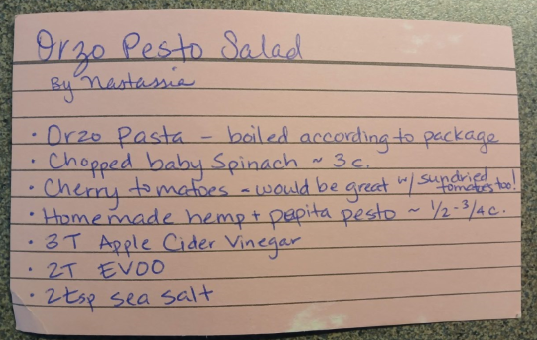 Orzo Pesto Salad
By Nastassia
• Orzo Pasta – boiled according to package
• Chopped baby Spinach ~ 3c.
• Cherry tomatoes – would be great w/ sundried tomatoes too!
• Homemade hemp + pepita pesto ~ 1/2 - 3/4 c.
• 3T Apple Cider Vinegar
• 2T EVOO
• 2tsp sea salt